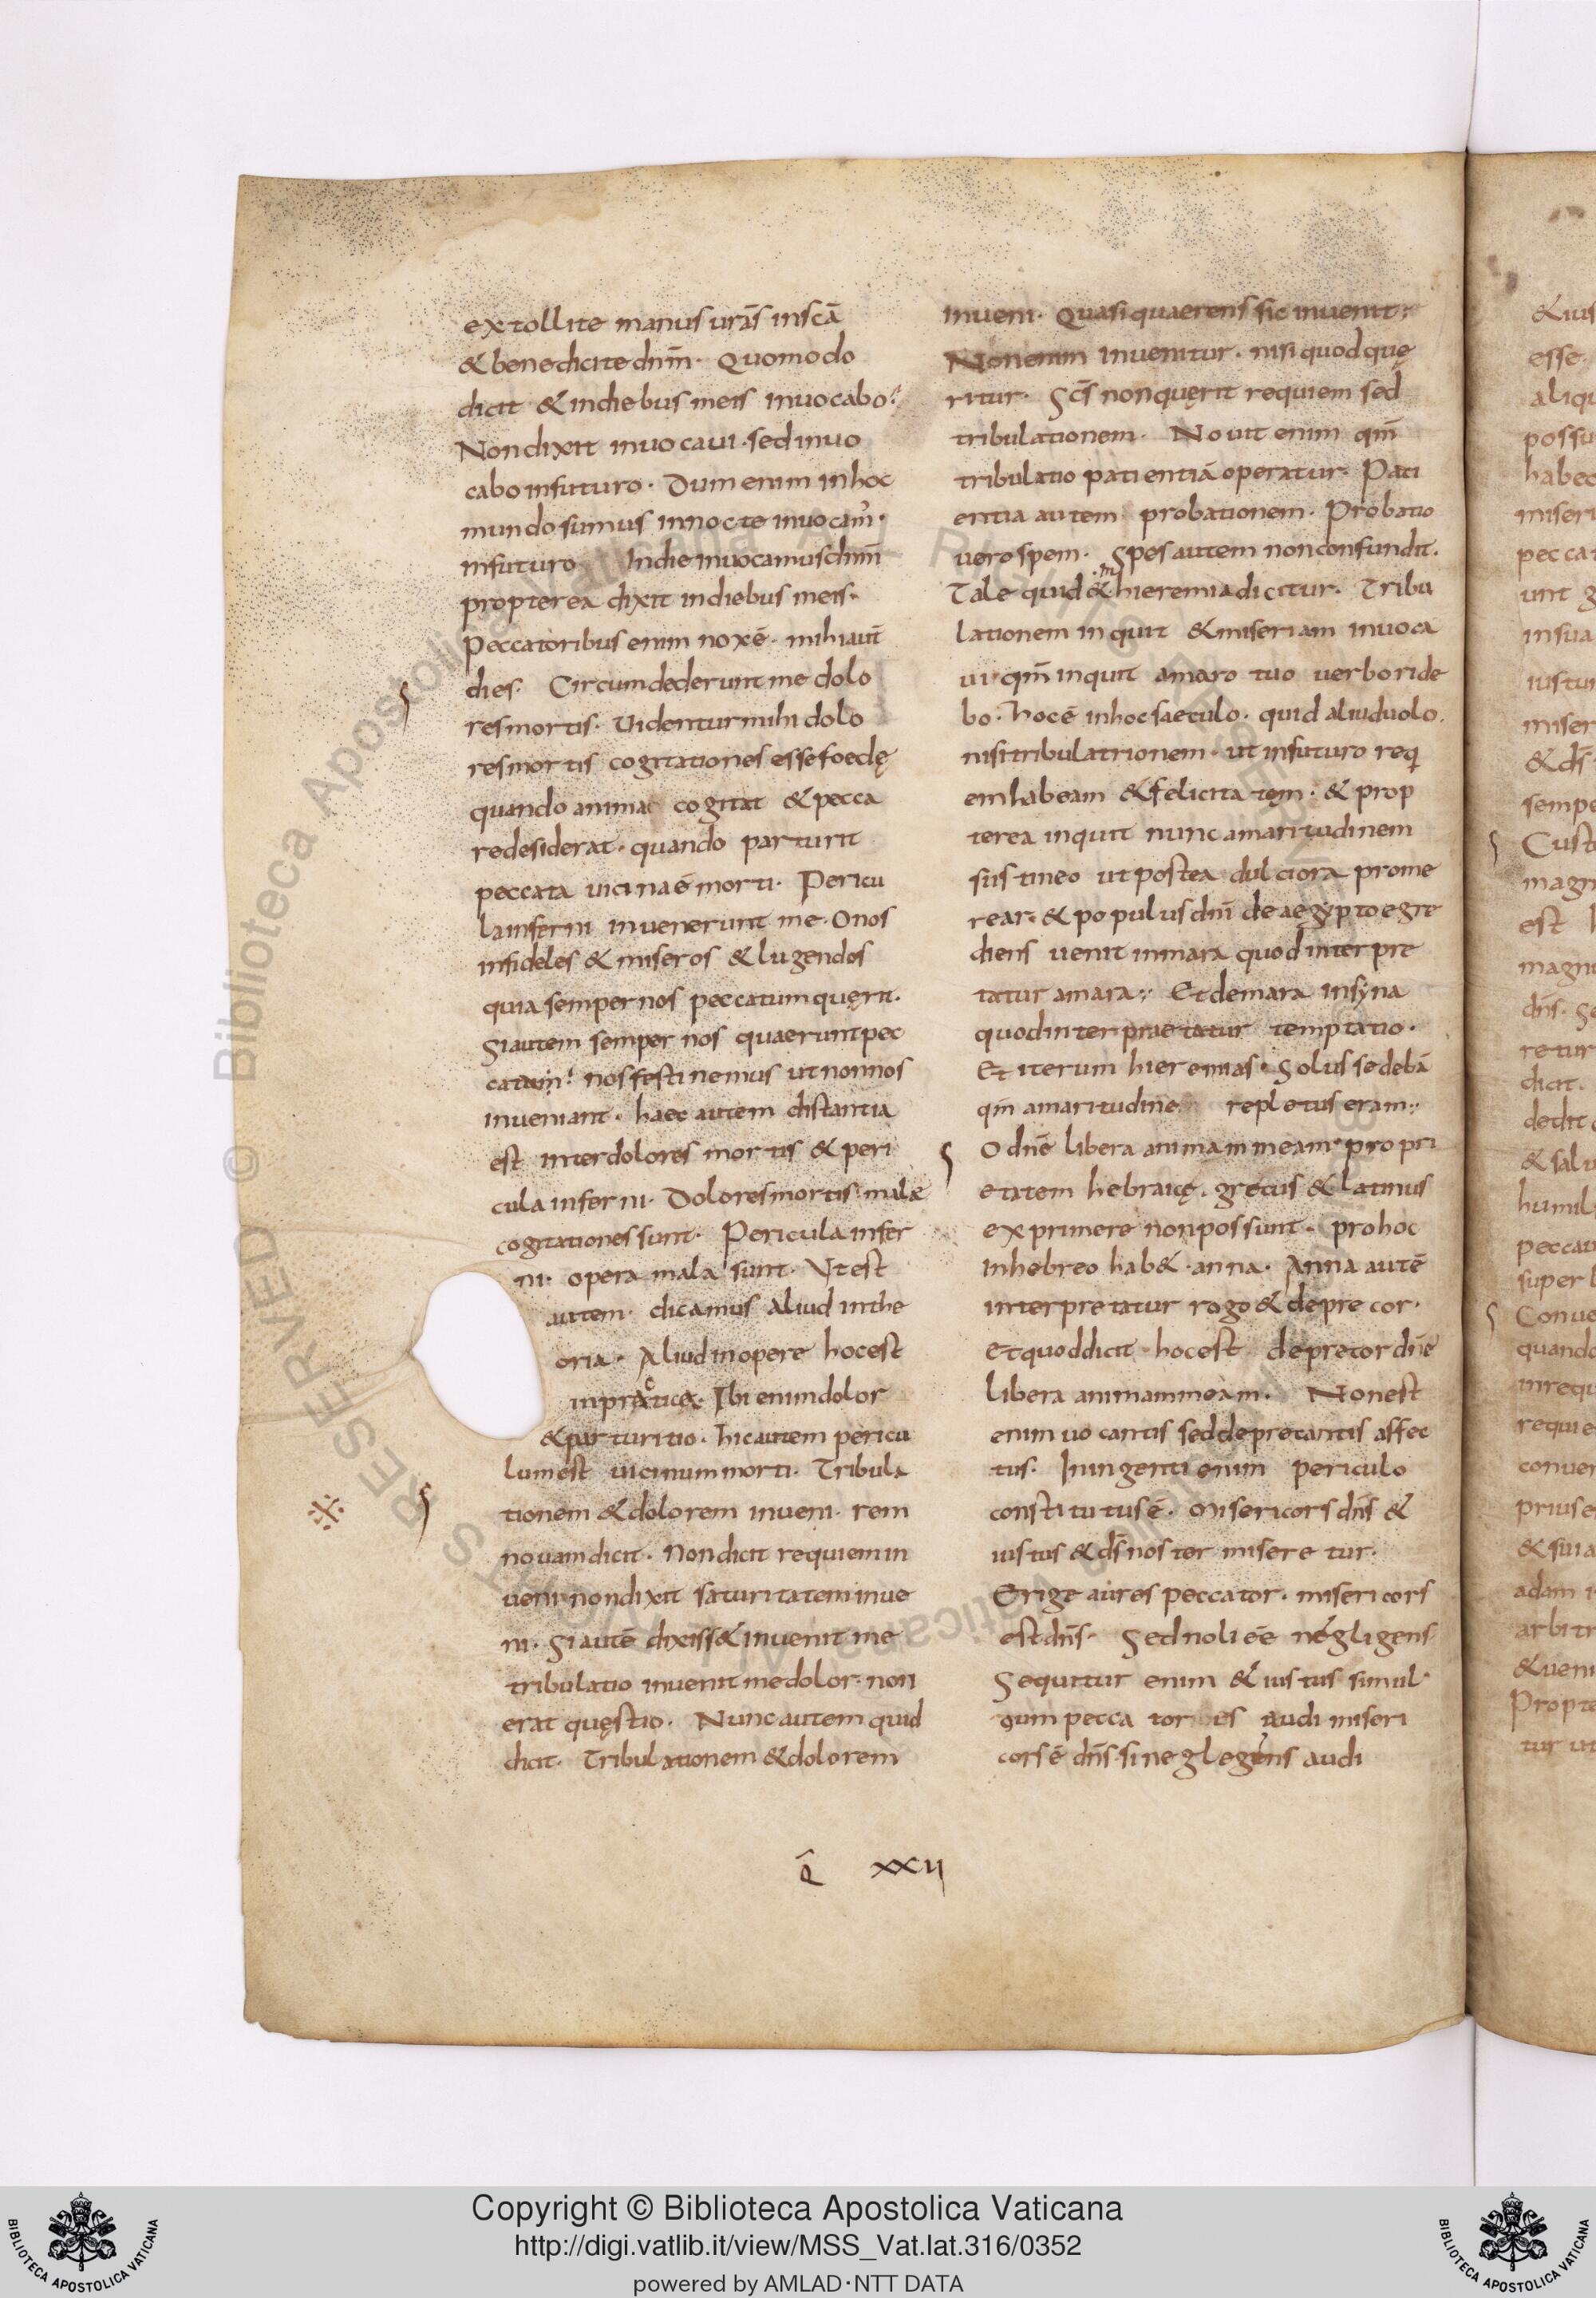 extollite manus urās inscā
& benedicite dnm̄. Quomodo
dicit & indiebus meis inuocabo?
Nondixit inuocaui. sed inuo
cabo infuturo. Dum enim inhoc
mundo sumus innocte inuocam'.
infuturo Indie inuocamus dnm̄
propterea dixit indiebus meis.
Peccatoribus enim nox ē. mihi aut̄
dies. Circumdederunt me dolo
res mortis. Uidentur mihi dolo
res mortis cogitationes esse foedę
quando anima cogitat & pecca
re desiderat. quando parturit
peccata uicina ē morti. Pericu
la inferni inuenerunt me. O nos
infideles & miseros & lugendos
quia semper nos peccatum quęrit.
Si autem semper nos quaerunt pec
catum. nos festinemus ut non nos
inueniant. haec autem distantia
est inter dolores mortis & peri
cula inferni. Dolores mortis malæ
cogitationes sunt. Pericula infer
ni. opera mala sunt. Ut est
autem. dicamus aliud inthe
oria. Aliud in opere hoc est
inpractica. Ibi enim dolor
& parturitio. hic autem pericu
lum est uicinum morti. Tribula
tionem & dolorem inueni. rem
nouam dicit. Non dicit requiem in
ueni non dixit saturitatem inue
ni. Si autē dixiss& inuenit me
tribulatio inuenit me dolor. non
erat quęstio. Nunc autem quid
dicit. Tribulationem & dolorem
inueni. Quasi quaerens sic inuenit;
Non enim inuenitur. nisi quod quę
ritur. Scs̄ non quęrit requiem sed
tribulationem. Nouit enim qm̄
tribulatio patientiā operatur. Pati
entia autem probationem. Probatio
uero spem. Spes autem non confundit.
Tale quid & in hieremia dicitur. Tribu
lationem inquit & miseriam inuoca
ui qm̄ inquit amaro tuo uerbo ride
bo. hoc ē inhoc saetulo. quid aliud uolo.
nisi tribulatrionem. ut infuturo requi
em habeam & felicitatem. & prop
terea inquit nunc amaritudinem
sustineo ut postea dulciora prome
rear. & populus dnī de aegypto egre
diens uenit inmara quod interpre
tatur amara; Et demara insyna
quod interpraetatur temptatio.
Et iterum hieremias. Solus sedebā
qm̄ amaritudine repletus eram;
O dnē libera animam meam. propri
etatem hebraicę. grecus & latinus
exprimere non possunt. pro hoc
inhebreo hab& . anna. Anna autē
interpretatur rogo & deprecor.
Et quod dicit. hoc est deprecor dnē
libera animam meam. Non est
enim uocantis sed deprecantis affec
tus. In ingenti enim periculo
constitutus ē. Misericors dns̄ &
iustus & ds̄ noster miseretur.
Erige aures peccator. misericors
est dns̄. Sed noli eē negligens
Sequitur enim & iustus simul.
cum peccatoribus audi miseri
cors ē dns̄. si neglegens audi
q̄ XXII
Copyright © Biblioteca Apostolica Vaticana
http://digi.vatlib.it/view/MSS_Vat.lat.316/0352
powered by AMLAD·NTT DATA